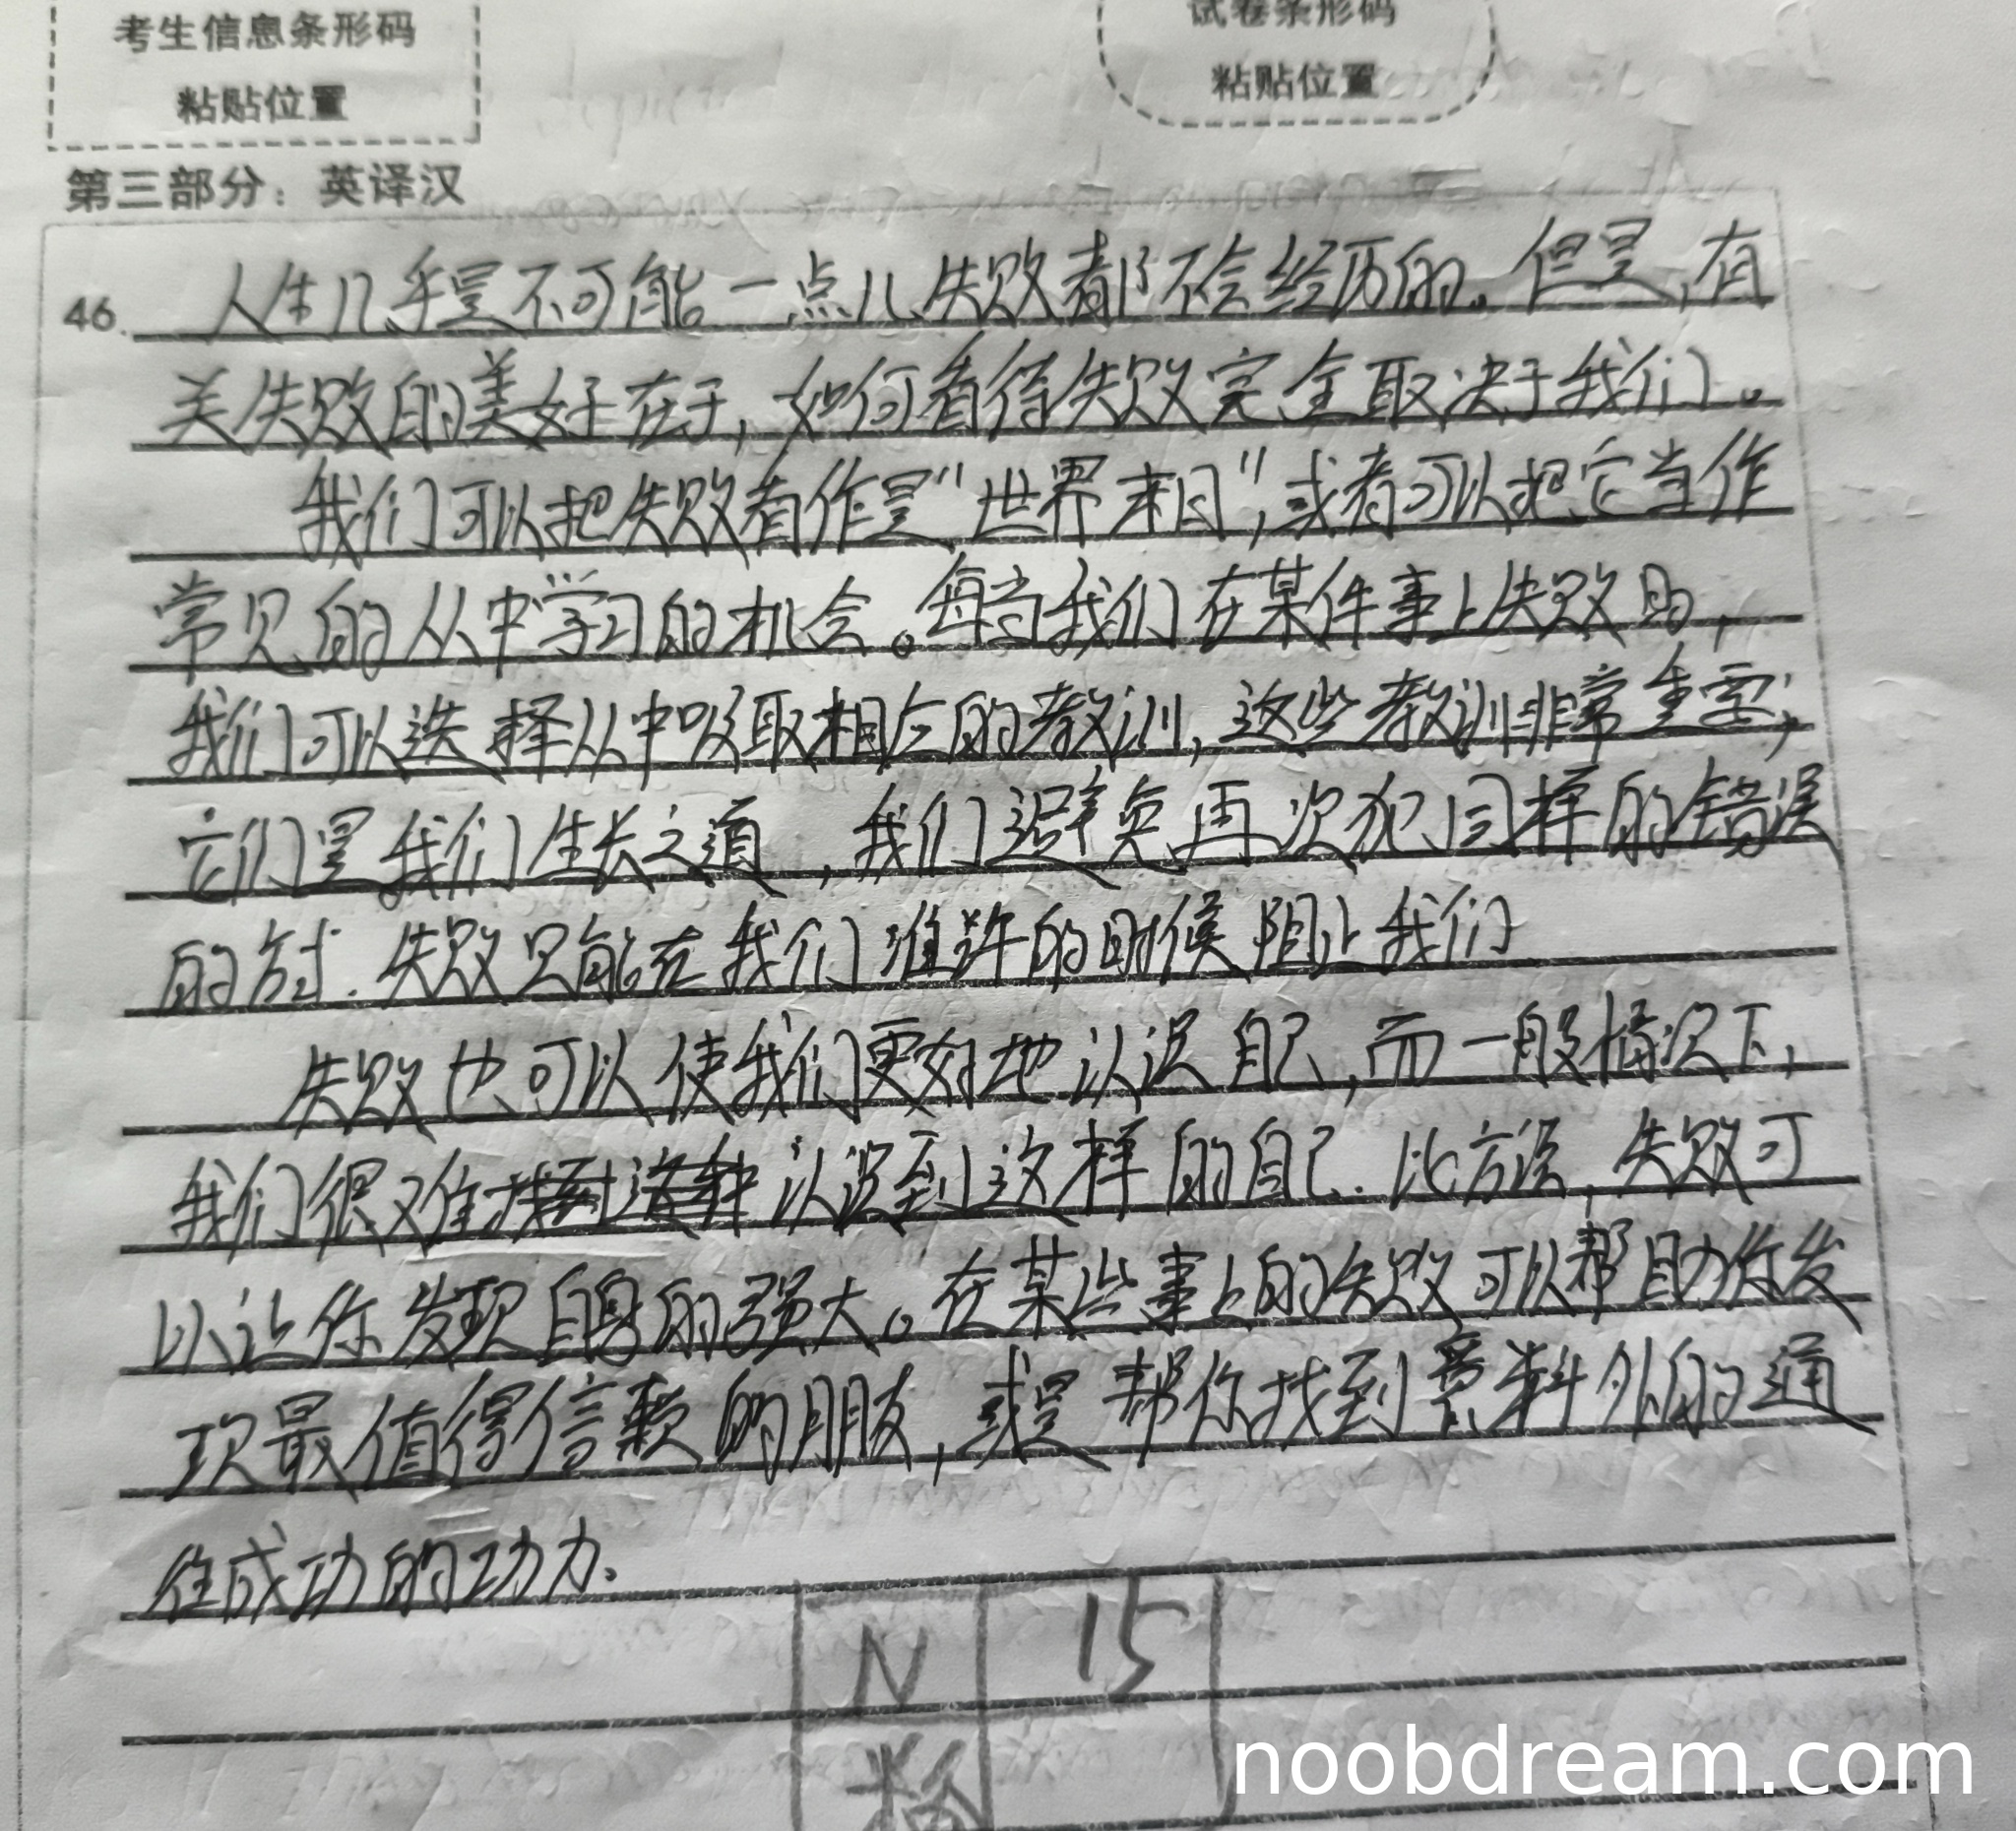 考生信息条形码
粘贴位置
试卷条形码
粘贴位置
第三部分：英译汉
46. 人生几乎是不可能一点儿失败都不会经历的。但是，有
关失败的美好在于，如何看待失败完全取决于我们。
我们可以把失败看作是“世界末日”，或者可以把它当作
常见的从中学习的机会。每当我们在某件事上失败时，
我们可以选择从中吸取相应的教训，这些教训非常重要；
它们是我们生长之道，我们避免再次犯同样的错误
的方式．失败只能在我们准许的时候阻止我们
失败也可以使我们更好地认识自己，而一般情况下，
我们很难认识到这样的自己．比方说，失败可
以让你发现自身的强大。在某些事上的失败可以帮助你发
现最值得信赖的朋友，或是帮你找到意料外的通
往成功的动力．
N 15
noobdream.com